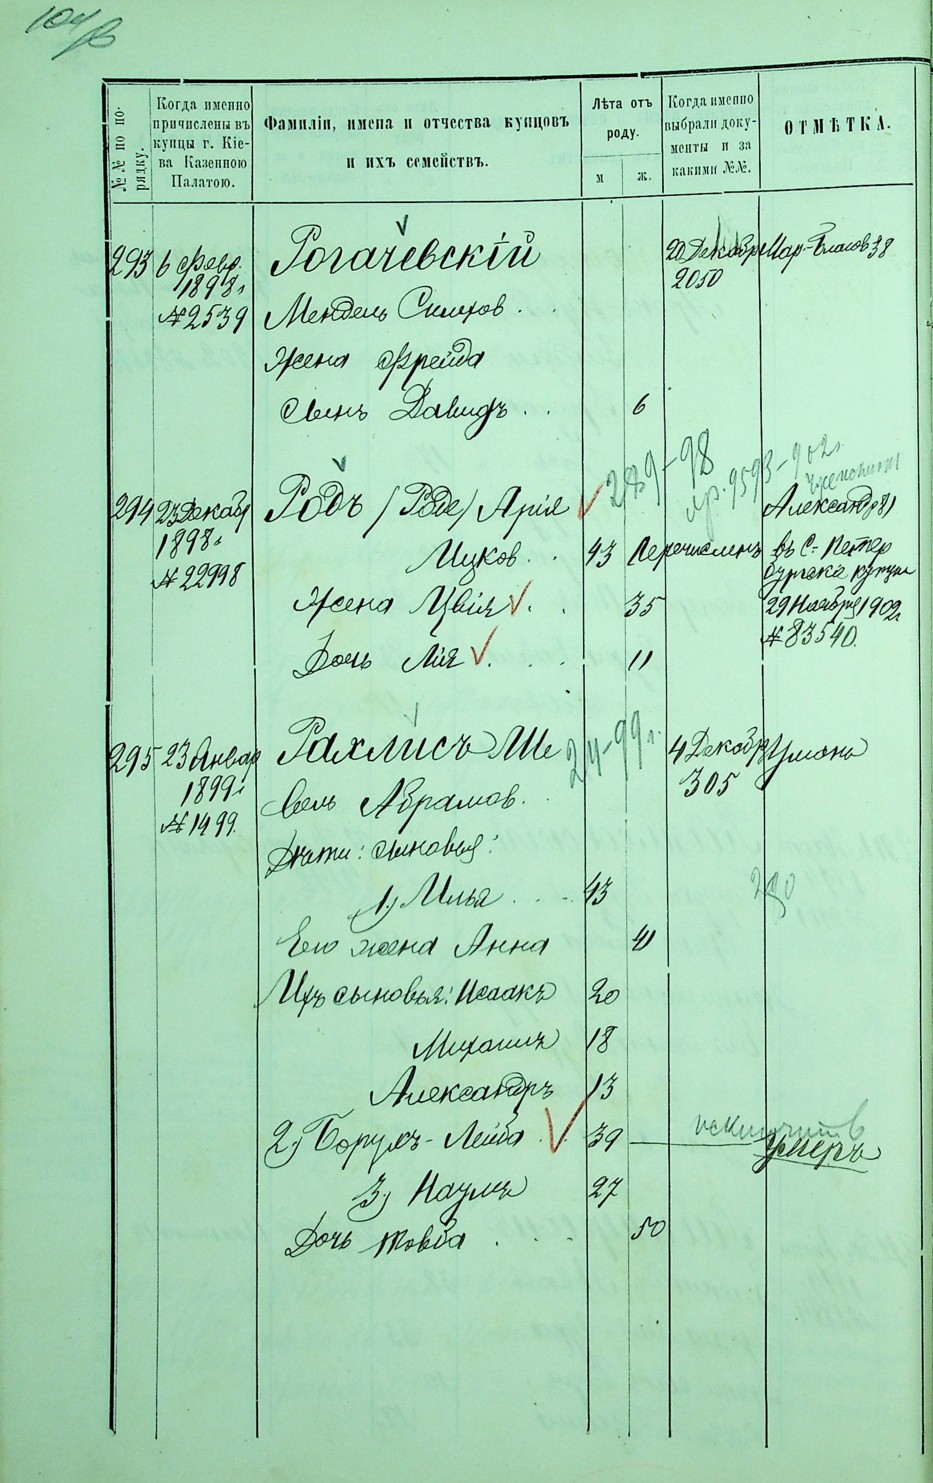 104
№№ по по-
рядку.
Когда именно
причислены въ
купцы г. Кіе-
ва Казенною
Палатою.
Фамиліи, имена и отчества купцовъ
и ихъ семействъ.
Лѣта отъ
роду.
м
ж.
Когда именно
выбрали доку-
менты и за
какими №№.
ОТМѢТКА.
293 6 Февр. Рогачевскій 20 Декабр Мар-Благов 38
1898 г. 2050
№ 2539 Мендель Симхов.
Жена Фрейда
Сынъ Давидъ 6
289-98
пр. 9593-902 г.
исключит
294 23 Декабр Родъ (Роде) Арія Александр 81
1898 г. Ицков. 43 Перечисленъ въ С-Петер
№ 22998 бургск купцы
Жена Цвія 35 29 Ноября 1902 г.
№ 83540.
Дочь Лія 11
295 23 Январ Рахлисъ Ше 24-99 г. 4 Декабр Умань
1899 г. вель Абрамов. 305
№ 1499.
Дѣти: сыновья:
1) Илья 43 290
Его жена Анна 41
Ихъ сыновья: Исаакъ 20
Михаилъ 18
Александръ 13
2) Борухъ-Лейба 39 исключить
умеръ
3) Наумъ 27
Дочь Товба 50